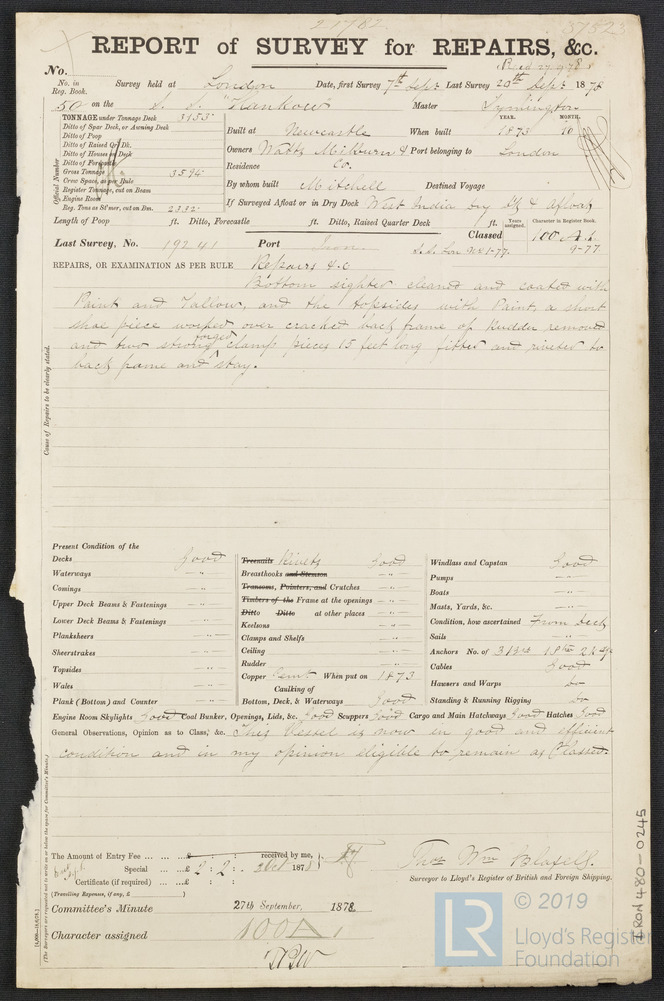 21782 37523
REPORT of SURVEY for REPAIRS, &c.
No. Recd 27.9.78
No. in Reg. Book. Survey held at London Date, first Survey 7th Sept Last Survey 20th Sept 1878
50 on the S. S. "Hankow" Master Symington
TONNAGE under Tonnage Deck 3153
Ditto of Spar Deck, or Awning Deck
Ditto of Poop
Ditto of Raised Qr. Dk.
Ditto of Houses on Deck
Ditto of Forecastle
Gross Tonnage 3594
Crew Space, as per Rule
Register Tonnage, cut on Beam
Engine Room
Reg. Tons as St'mer, cut on Bm. 2332
Official Number
Built at Newcastle When built YEAR. 1873 MONTH. 10
Owners Watts Milburn & Co. Port belonging to London
Residence
By whom built Mitchell Destined Voyage
If Surveyed Afloat or in Dry Dock West India dry Dk & afloat
Length of Poop ft. Ditto, Forecastle ft. Ditto, Raised Quarter Deck ft.
Years assigned. Character in Register Book.
Classed 100 A1
9-77
Last Survey, No. 19241 Port Iron S.S. Lon No 1-77
REPAIRS, OR EXAMINATION AS PER RULE Repairs &c
Bottom sighted cleaned and coated with
Paint and Tallow, and the topsides with Paint, a short
shoe piece worked over cracked back frame of Rudder removed
and two strong forged clamp pieces 15 feet long fitted and riveted to
back frame and stay.
Cause of Repairs to be clearly stated.
Present Condition of the
Decks Good
Waterways - " -
Comings - " -
Upper Deck Beams & Fastenings - " -
Lower Deck Beams & Fastenings - " -
Planksheers - " -
Sheerstrakes - " -
Topsides - " -
Wales - " -
Plank (Bottom) and Counter - " -
Treenails Rivets Good
Breasthooks and Stemson - " -
Transoms, Pointers, and Crutches - " -
Timbers of the Frame at the openings - " -
Ditto Ditto at other places - " -
Keelsons - " -
Clamps and Shelfs - " -
Ceiling - " -
Rudder - " -
Copper Cemt When put on 1873
Caulking of
Bottom, Deck, & Waterways Good
Windlass and Capstan Good
Pumps - " -
Boats - " -
Masts, Yards, &c. - " -
Condition, how ascertained From Deck
Sails - " -
Anchors No. of 3 Bre 1 Ste 2 Kge
Cables Good
Hawsers and Warps Do
Standing & Running Rigging Do
Engine Room Skylights Good Coal Bunker, Openings, Lids, &c. Good Scuppers Good Cargo and Main Hatchways Good Hatches Good
General Observations, Opinion as to Class, &c. This Vessel is now in good and efficient
condition and in my opinion eligible to remain as Classed.
The Amount of Entry Fee ... ... ...£ : : received by me,
Special ... ...£ 2 : 2 : 3 Oct 1878
Certificate (if required) ... ...£ : :
(Travelling Expenses, if any, £ )
Thos Wm Blasell.
Surveyor to Lloyd's Register of British and Foreign Shipping.
Committee's Minute 27th September, 1878.
Character assigned 100 A 1
(The Surveyors are requested not to write on or below the space for Committee's Minute.)
IRON 480-0245
© 2019
LR Lloyd's Register
Foundation